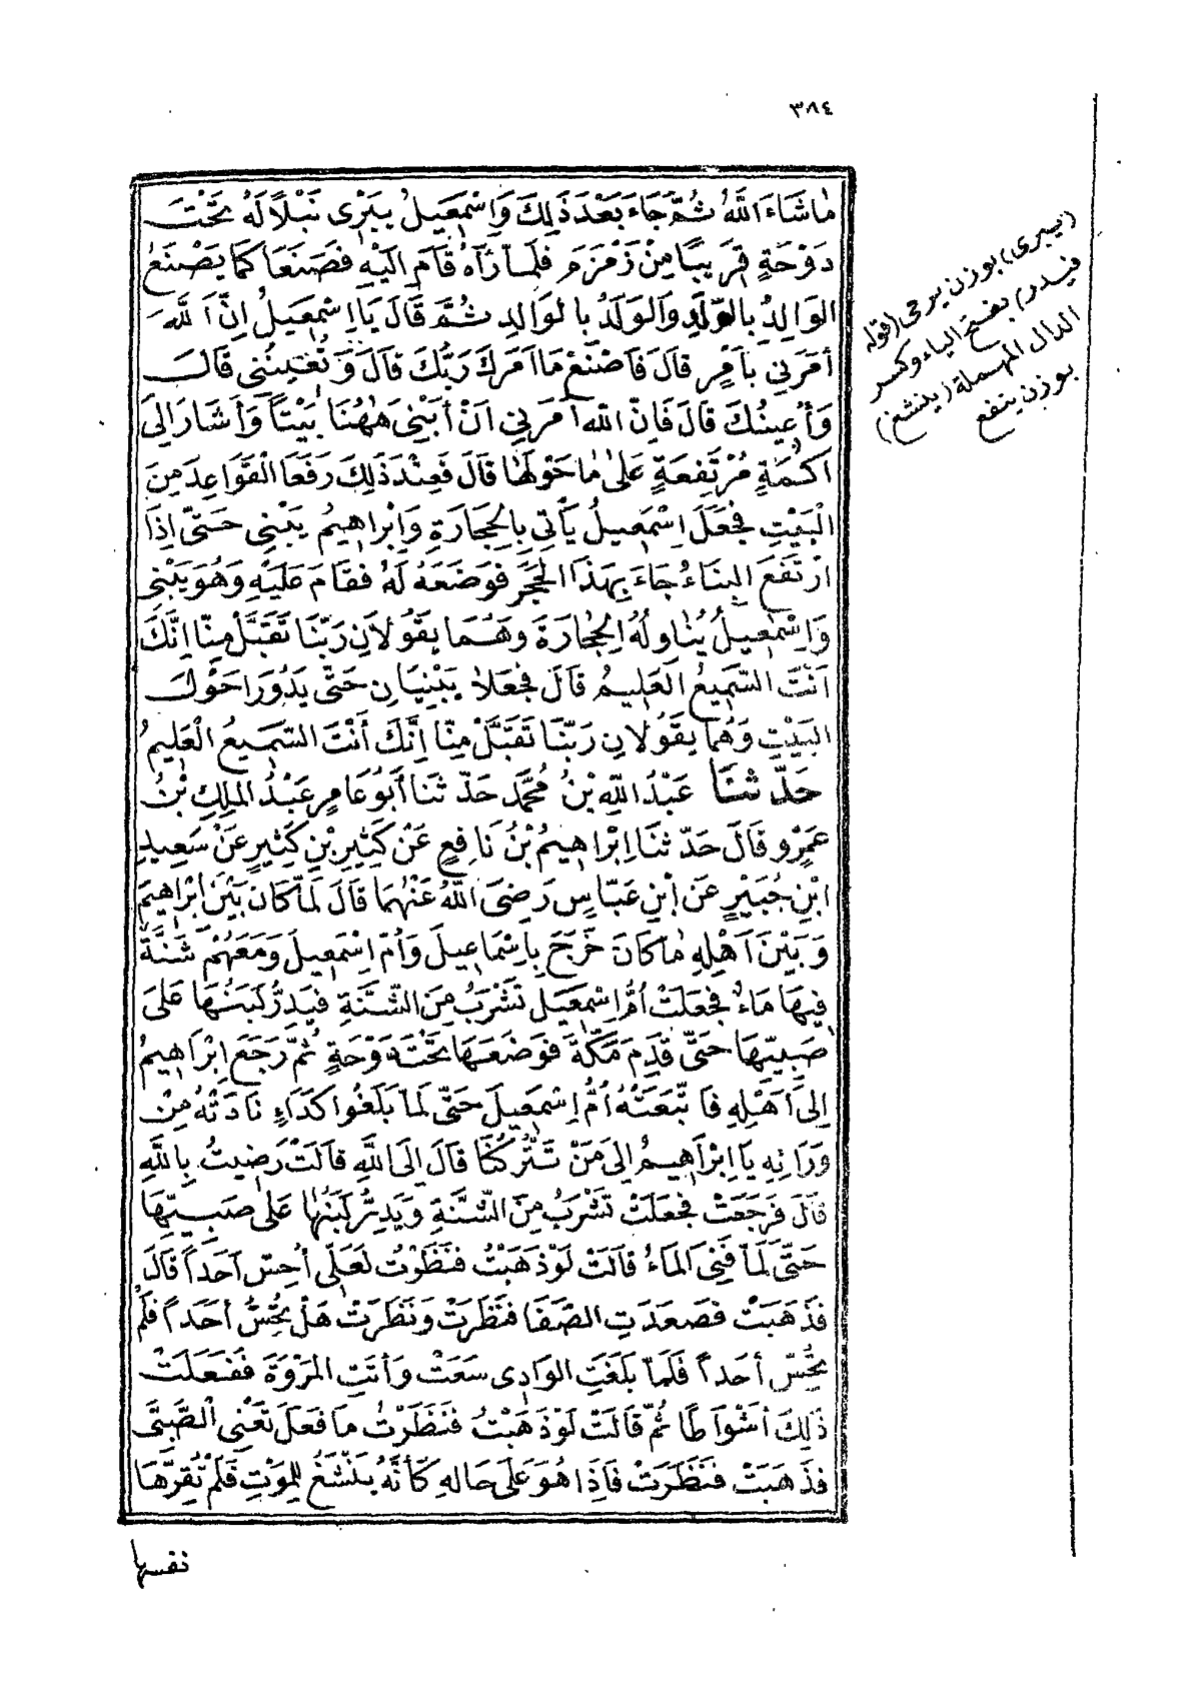 ٣٨٤
مَا شَاءَ اللّٰهُ ثُمَّ جَاءَ بَعْدَ ذَلِكَ وَإِسْمَعِيلُ يَبْرِى نَبْلًا لَهُ تَحْتَ
دَوْحَةٍ قَرِيبًا مِنْ زَمْزَمَ فَلَمَّا رَآهُ قَامَ إِلَيْهِ فَصَنَعَا كَمَا يَصْنَعُ
الوَالِدُ بِالوَلَدِ وَالوَلَدُ بِالْوَالِدِ ثُمَّ قَالَ يَا إِسْمَعِيلُ إِنَّ اللّٰهَ
أَمَرَنِي بِأَمْرٍ قَالَ فَاصْنَعْ مَا أَمَرَكَ رَبُّكَ قَالَ وَتُعِينُنِي قَالَ
وَأُعِينُكَ قَالَ فَإِنَّ اللّٰهَ أَمَرَنِي أَنْ أَبْنِىَ هٰهُنَا بَيْتًا وَأَشَارَ إِلَى
أَكَمَةٍ مُرْتَفِعَةٍ عَلَى مَا حَوْلَهَا قَالَ فَعِنْدَ ذَلِكَ رَفَعَا الْقَوَاعِدَ مِنَ
الْبَيْتِ فَجَعَلَ إِسْمَعِيلُ يَأْتِي بِالحِجَارَةِ وَإِبْرَاهِيمُ يَبْنِي حَتَّى إِذَا
ارْتَفَعَ البِنَاءُ جَاءَ بِهَذَا الحَجَرِ فَوَضَعَهُ لَهُ فَقَامَ عَلَيْهِ وَهُوَ يَبْنِى
وَإِسْمَعِيلُ يُنَاوِلُهُ الحِجَارَةَ وَهُمَا يَقُولَانِ رَبَّنَا تَقَبَّلْ مِنَّا إِنَّكَ
أَنْتَ السَّمِيعُ العَلِيمُ قَالَ فَجَعَلَا يَبْنِيَانِ حَتَّى يَدُورَا حَوْلَ
البَيْتِ وَهُمَا يَقُولَانِ رَبَّنَا تَقَبَّلْ مِنَّا إِنَّكَ أَنْتَ السَّمِيعُ الْعَلِيمُ
حَدَّثَنَا عَبْدُ اللّٰهِ بْنُ مُحَمَّدٍ حَدَّثَنَا أَبُو عَامِرٍ عَبْدُ المَلِكِ بْنُ
عَمْرٍو قَالَ حَدَّثَنَا إِبْرَاهِيمُ بْنُ نَافِعٍ عَنْ كَثِيرِ بْنِ كَثِيرٍ عَنْ سَعِيدِ
ابْنِ جُبَيْرٍ عَنِ ابْنِ عَبَّاسٍ رَضِىَ اللّٰهُ عَنْهُمَا قَالَ لَمَّا كَانَ بَيْنَ إِبْرَاهِيمَ
وَبَيْنَ أَهْلِهِ مَا كَانَ خَرَجَ بِإِسْمَاعِيلَ وَأُمِّ إِسْمَعِيلَ وَمَعَهُمْ شَنَّةٌ
فِيهَا مَاءٌ فَجَعَلَتْ أُمُّ إِسْمَعِيلَ تَشْرَبُ مِنَ الشَّنَّةِ فَيَدِرُّ لَبَنُهَا عَلَى
صَبِيِّهَا حَتَّى قَدِمَ مَكَّةَ فَوَضَعَهَا تَحْتَ دَوْحَةٍ ثُمَّ رَجَعَ إِبْرَاهِيمُ
إِلَى أَهْلِهِ فَاتَّبَعَتْهُ أُمُّ إِسْمَعِيلَ حَتَّى لَمَّا بَلَغُوا كَدَاءٍ نَادَتْهُ مِنْ
وَرَائِهِ يَا إِبْرَاهِيمُ إِلَى مَنْ تَتْرُكُنَا قَالَ إِلَى اللّٰهِ قَالَتْ رَضِيتُ بِاللّٰهِ
قَالَ فَرَجَعَتْ فَجَعَلَتْ تَشْرَبُ مِنَ الشَّنَّةِ وَيَدِرُّ لَبَنُهَا عَلَى صَبِيِّهَا
حَتَّى لَمَّا فَنِىَ المَاءُ قَالَتْ لَوْ ذَهَبْتُ فَنَظَرْتُ لَعَلِّى أُحِسُّ أَحَدًا قَالَ
فَذَهَبَتْ فَصَعِدَتِ الصَّفَا فَنَظَرَتْ وَنَظَرَتْ هَلْ تُحِسُّ أَحَدًا فَلَمْ
تُحِسَّ أَحَدًا فَلَمَّا بَلَغَتِ الوَادِى سَعَتْ وَأَتَتِ المَرْوَةَ فَفَعَلَتْ
ذَلِكَ أَشْوَاطًا ثُمَّ قَالَتْ لَوْ ذَهَبْتُ فَنَظَرْتُ مَا فَعَلَ تَعْنِى الصَّبِىَّ
فَذَهَبَتْ فَنَظَرَتْ فَإِذَا هُوَ عَلَى حَالِهِ كَأَنَّهُ يَنْشَغُ لِلْمَوْتِ فَلَمْ تُقِرَّهَا
نفسها
(يبرى) بوزن يرمى (قوله
فيدر) بفتح الياء وكسر
الدال المهملة (ينشغ)
بوزن ينفع